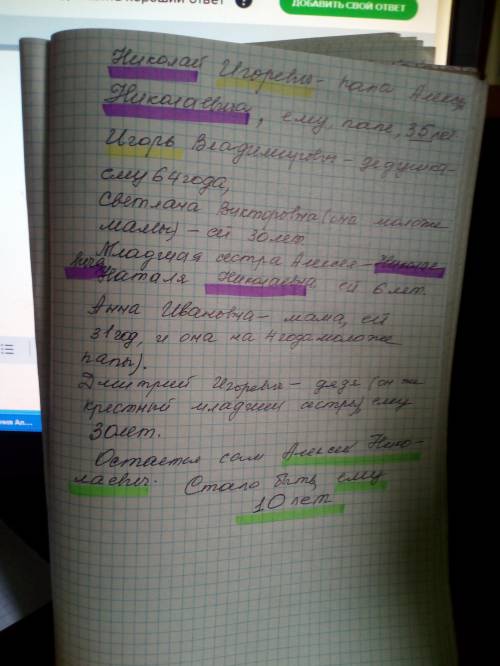 хороший ответ ?
ДОБАВИТЬ СВОЙ ОТВЕТ
Николай Игоревич - папа Алексея
Николаевича, ему, папе, 35 лет
Игорь Владимирович - дедушка -
ему 64 года,
Светлана Викторовна (она моложе
мамы) - ей 30 лет.
Младшая сестра Алексея - Николае
вича Наталя Николаевна ей 6 лет.
Анна Ивановна - мама, ей
31 год, и она на 4 года моложе
папы).
Дмитрий Игоревич - дядя (он же
крестный младшей сестры, ему
30 лет.
Остается сам Алексей Нико-
лаевич. Стало быть, ему
10 лет